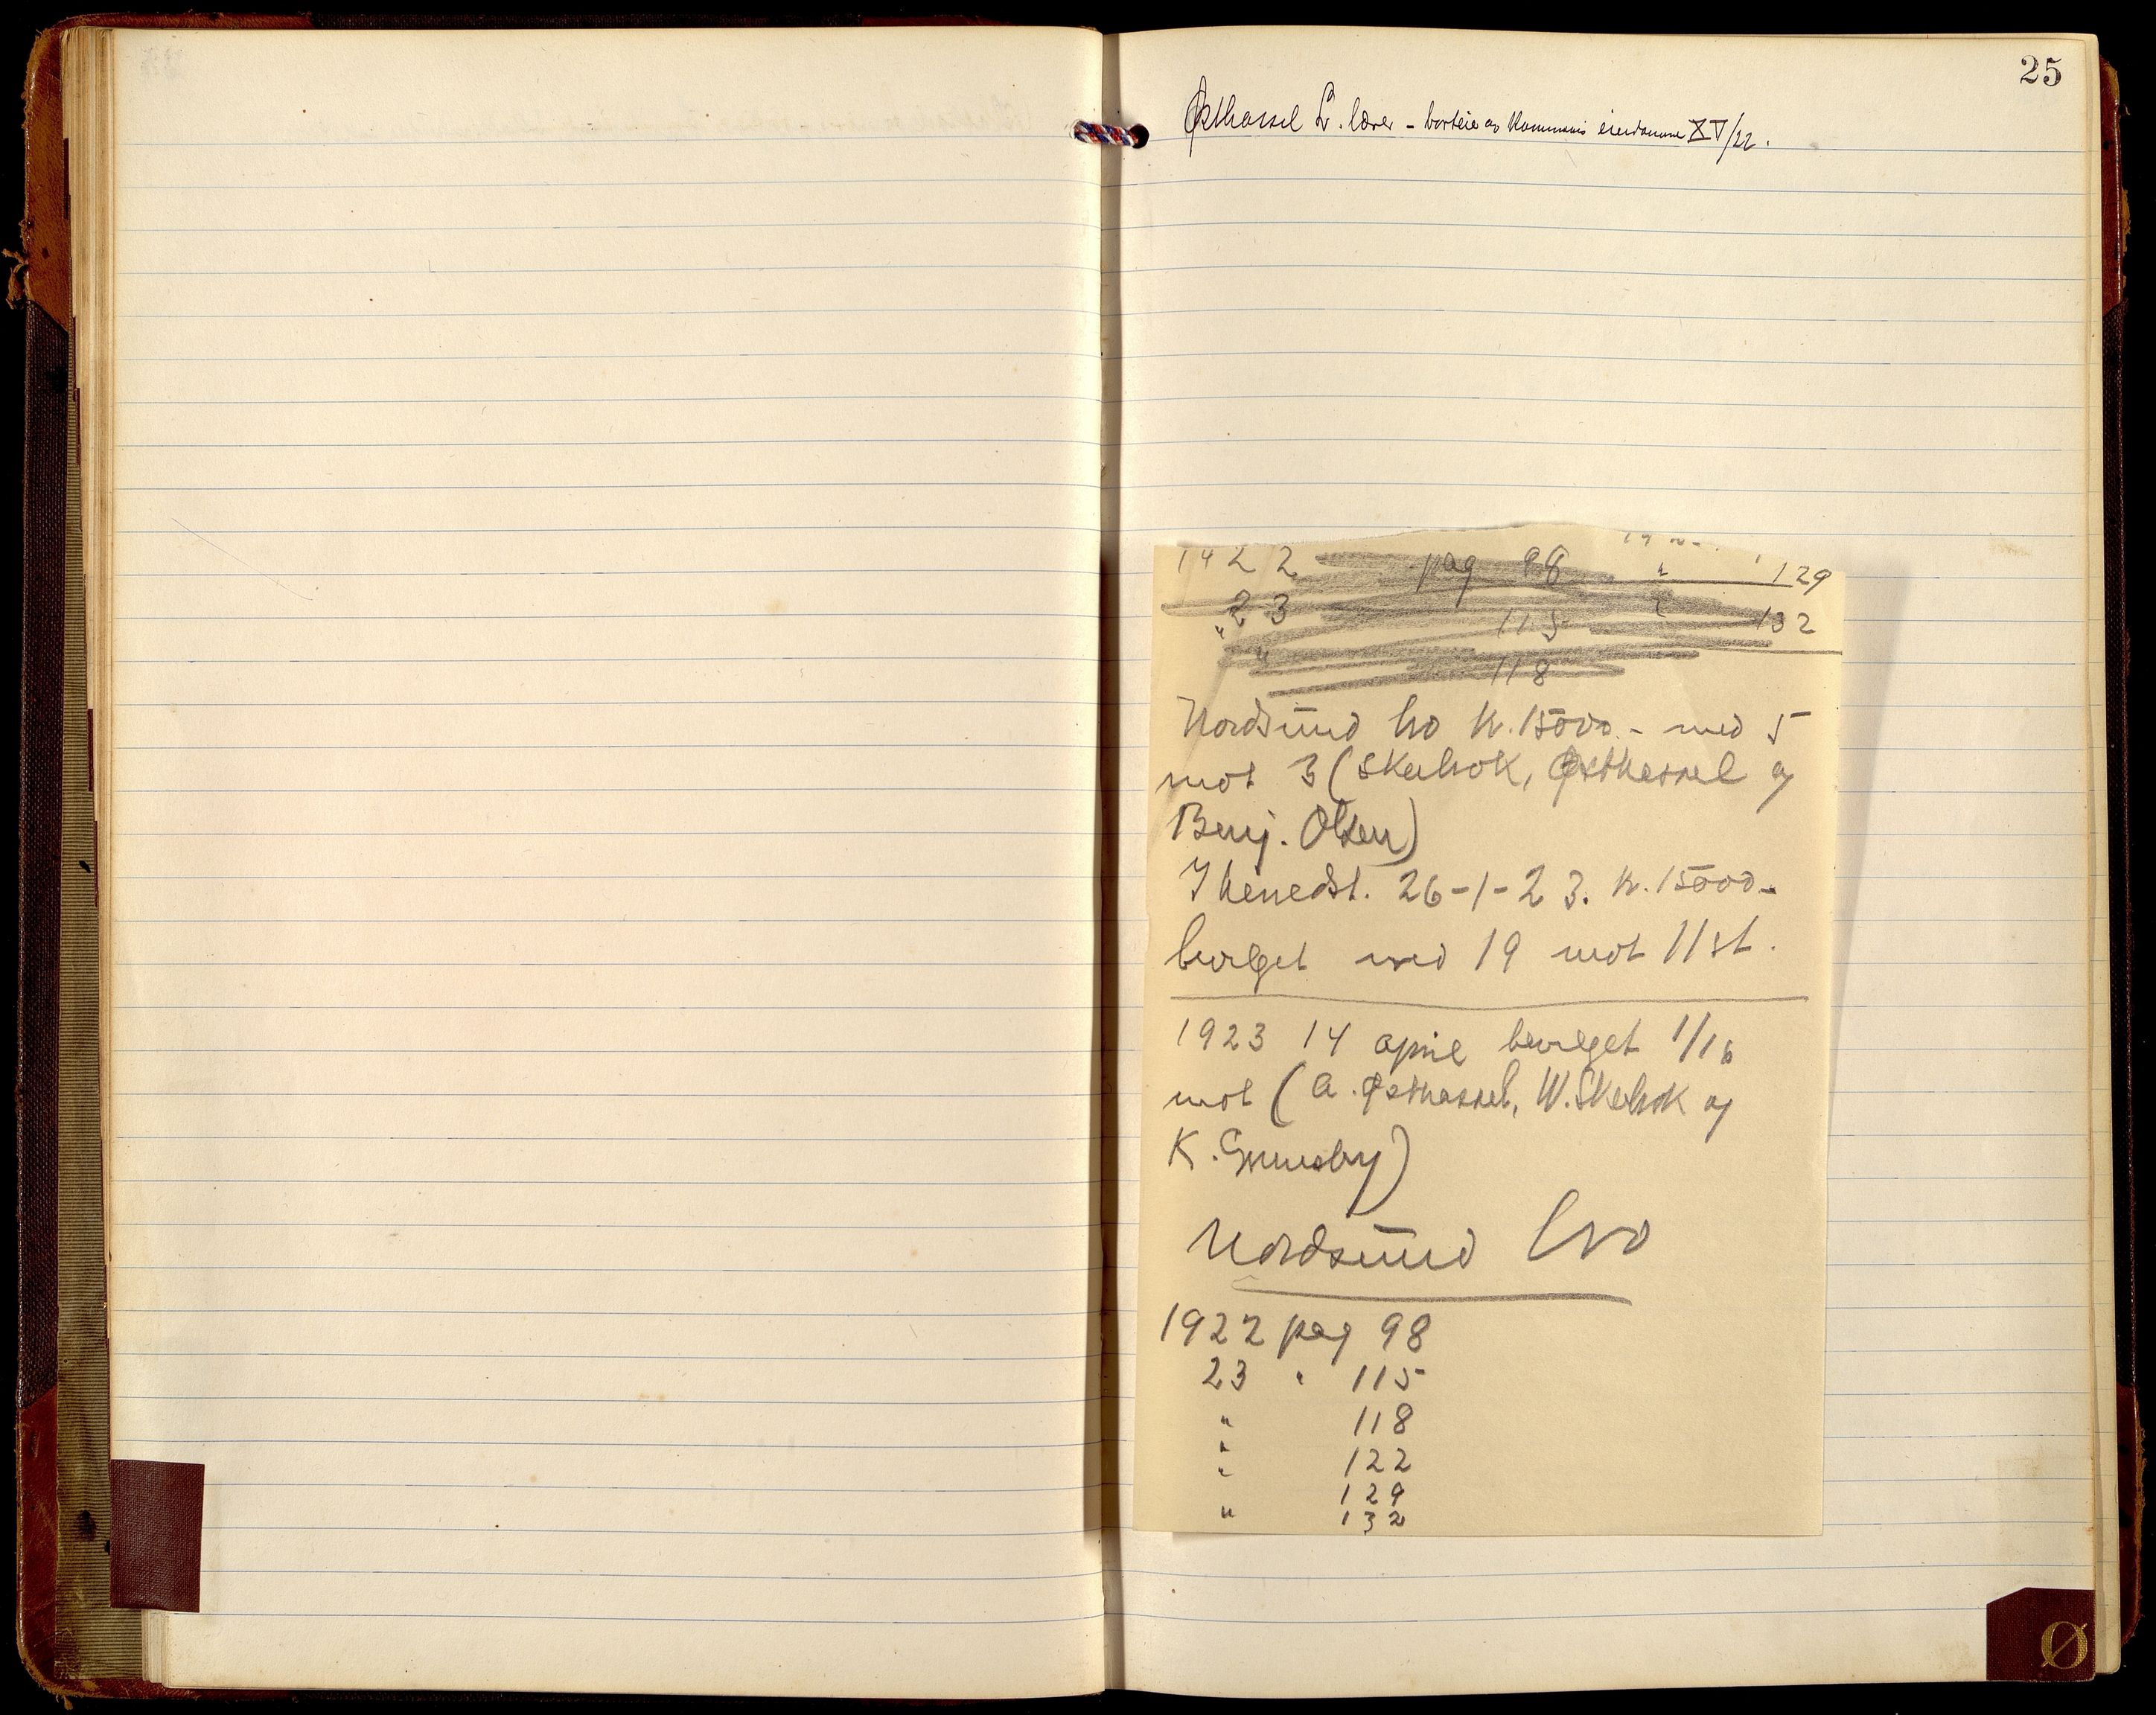 25
Østhassel L. lærer - borteie av Kommunens eiendomme XV/22.
1922 pag 98 " 129
" 23 115 " 132
" 118
Nordsund bro kr. 15000.- med 5
mot 3 (Skeibrok, Østhassel og
Benj. Olsen)
I herredst. 26-1-23. kr. 15000.-
bevilget med 19 mot 11 st.
1923 14 april bevilget 1/16
mot (A. Østhassel, W. Skeibrok og
K. Grimsby)
Nordsund bro
1922 pag 98
23 " 115
" 118
" 122
" 129
" 132
Ø